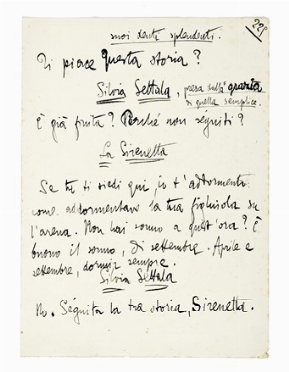 suoi denti splendenti.
225
Ti piace questa storia?
Silvia Settala, presa dalla grazia
di quella semplice.
È già finita? Perché non séguiti?
La Sirenetta
Se tu ti siedi qui io t'addormento
come addormentavo la tua figliuola su
l'arena. Non hai sonno a quest'ora? È
buono il sonno, di settembre. Aprile e
settembre, dormir sempre.
Silvia Settala
No. Séguita la tua storia, Sirenetta.